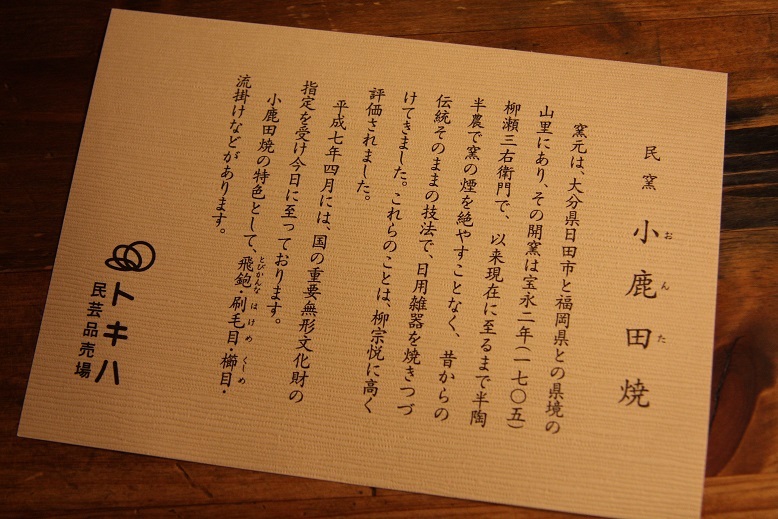 民窯 小鹿田焼
おんた
窯元は、大分県日田市と福岡県との県境の
山里にあり、その開窯は宝永二年(一七〇五)
柳瀬三右衛門で、以来現在に至るまで半陶
半農で窯の煙を絶やすことなく、昔からの
伝統そのままの技法で、日用雑器を焼きつづ
けてきました。これらのことは、柳宗悦に高く
評価されました。
平成七年四月には、国の重要無形文化財の
指定を受け今日に至っております。
小鹿田焼の特色として、飛鉋・刷毛目・櫛目・
とびかんな はけめ くしめ
流掛けなどがあります。
トキハ
民芸品売場